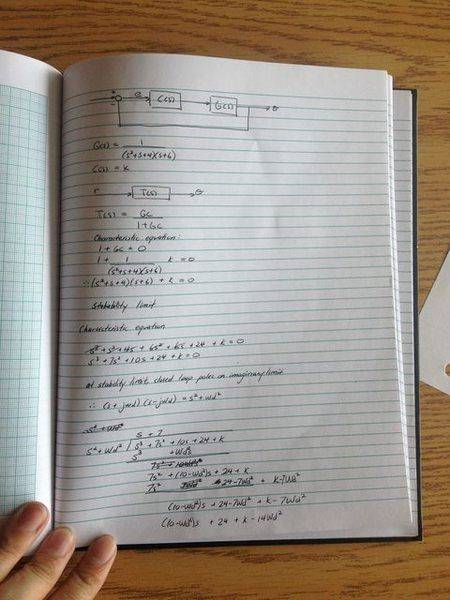 + e C(s) G(s) θ
-
G(s) = 1
(s²+s+4)(s+6)
C(s) = k
r T(s) θ
T(s) = GC
1+GC
Characteristic equation:
1 + GC = 0
1 + 1 k = 0
(s²+s+4)(s+6)
∴ (s²+s+4)(s+6) + k = 0
Stability limit.
Characteristic equation
+ s² + 4s + 6s² + 6s + 24 + k = 0
s³ + 7s² + 10s + 24 + k = 0
At stability limit, closed loop poles on imaginary limit.
∴ (s + jωd)(s - jωd) = s² + ωd²
s² + ωd²
s + 7
s² + ωd² | s³ + 7s² + 10s + 24 + k
s³ + ωd²s
7s² + 10
7s² + (10-ωd²)s + 24 + k
7s² 24-7ωd² + k-7ωd²
(10-ωd²)s + 24-7ωd² + k-7ωd²
(10-ωd²)s + 24 + k-14ωd²